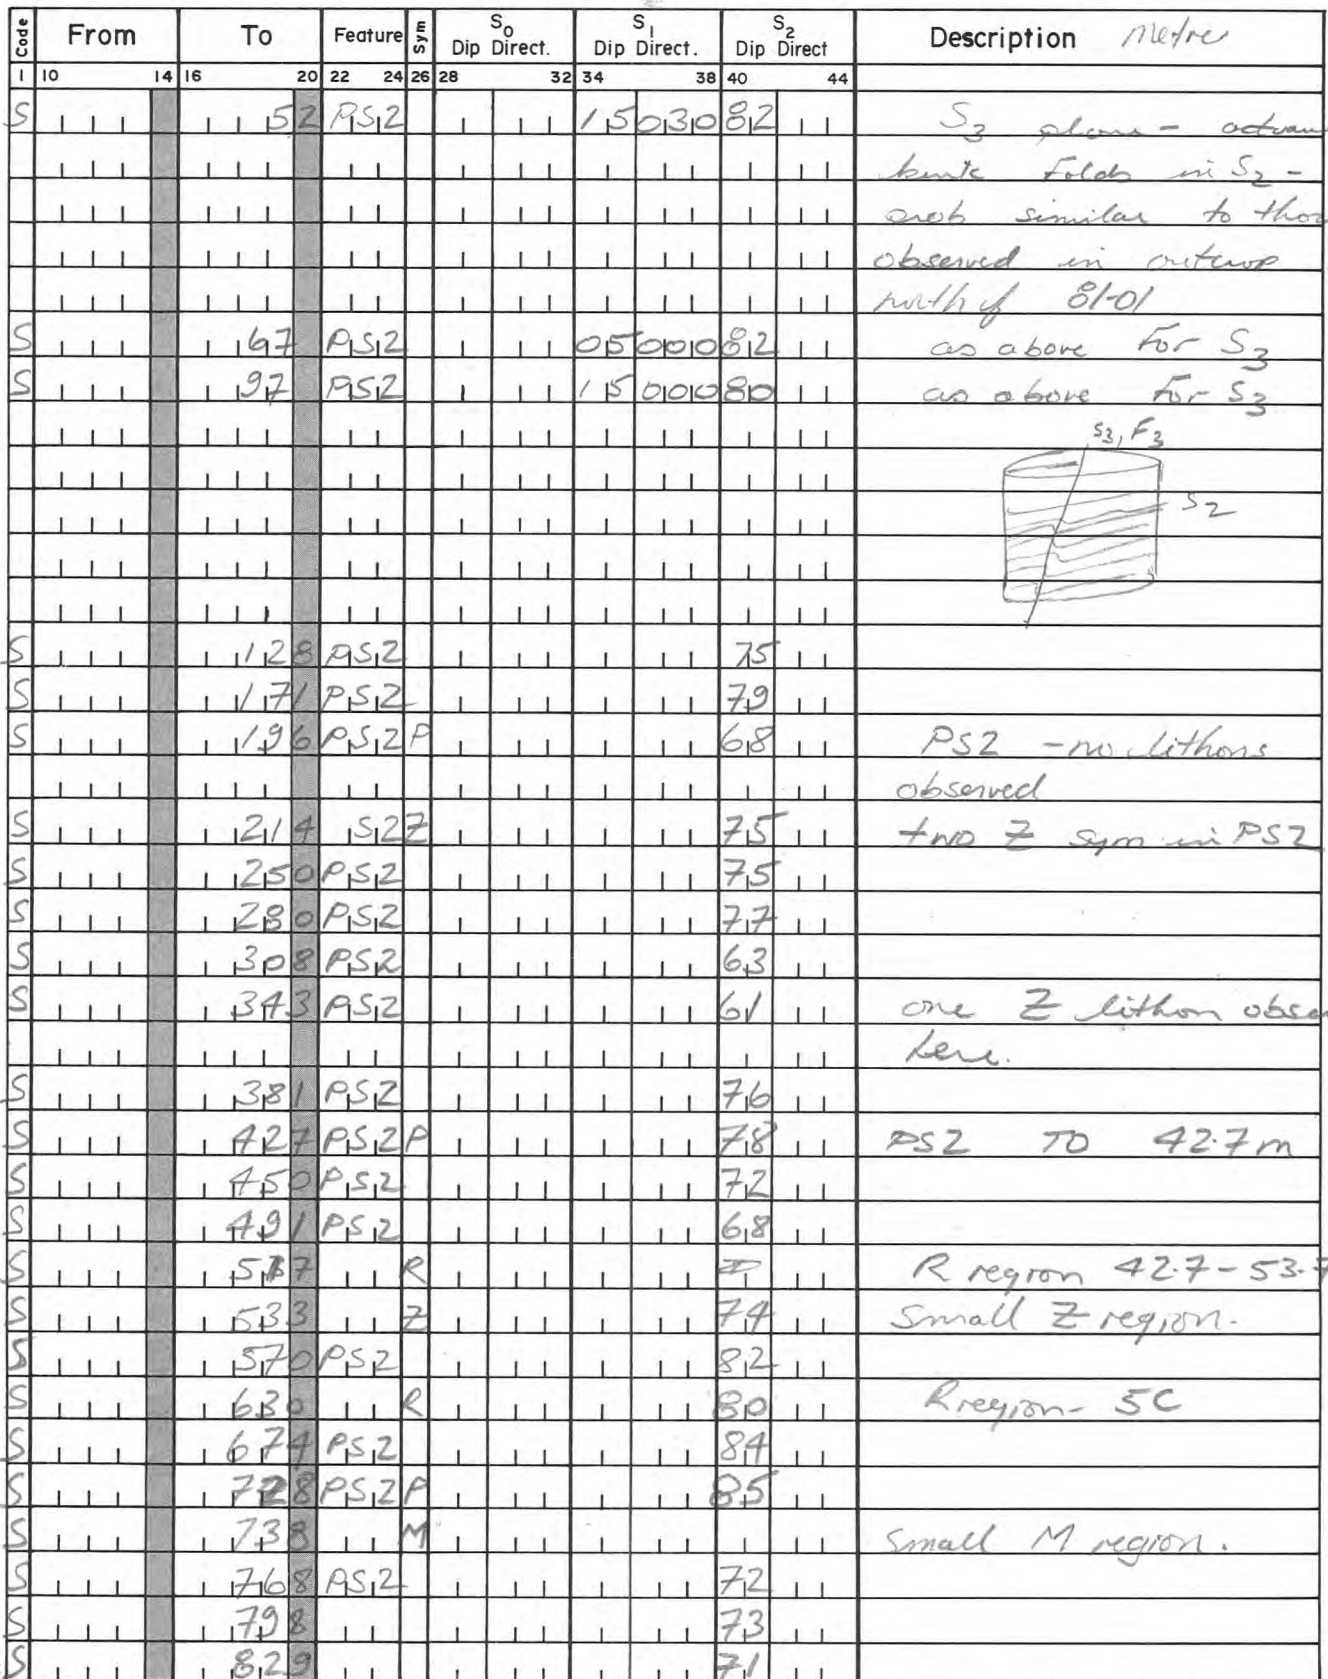 Code From To Feature Sym S0 Dip Direct. S1 Dip Direct. S2 Dip Direct Description Metre
1 10 14 16 20 22 24 26 28 32 34 38 40 44
S 52 PS2 15030 82 S3 -
folds in S2 -
similar to
observed in outcrop
north of 81-01
S 67 PS2 05000 82 as above For S3
S 97 PS2 15000 80 as above For S3
S3, F3
S2
S 128 PS2 75
S 171 PS2 79
S 196 PS2 P 68 PS2 - no lithons
observed
S 214 S2 Z 75 two Z sym in PS2
S 250 PS2 75
S 280 PS2 77
S 308 PS2 63
S 343 PS2 61 one Z lithon obse
here.
S 381 PS2 76
S 427 PS2 P 78 PS2 TO 42.7m
S 450 PS2 72
S 491 PS2 68
S 537 R R region 42.7-53.7
S 533 Z 74 Small Z region.
S 570 PS2 82
S 630 R 80 R region - 5C
S 674 PS2 84
S 728 PS2 P 85
S 738 M small M region.
S 768 PS2 72
S 798 73
S 829 71